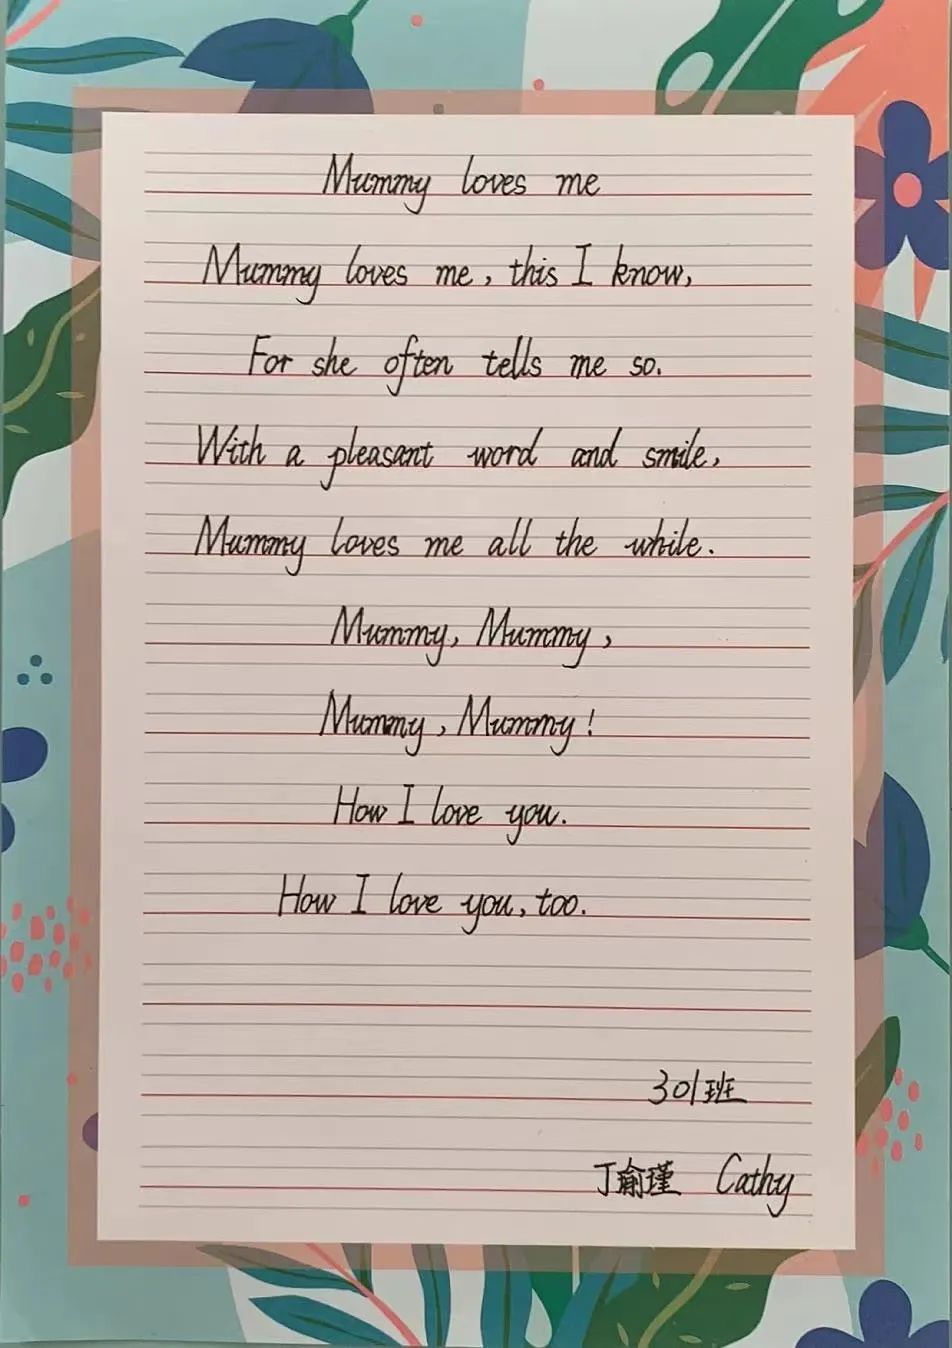 Mummy loves me
Mummy loves me, this I know,
For she often tells me so.
With a pleasant word and smile,
Mummy loves me all the while.
Mummy, Mummy,
Mummy, Mummy!
How I love you.
How I love you, too.
301班
丁瑜瑾 Cathy